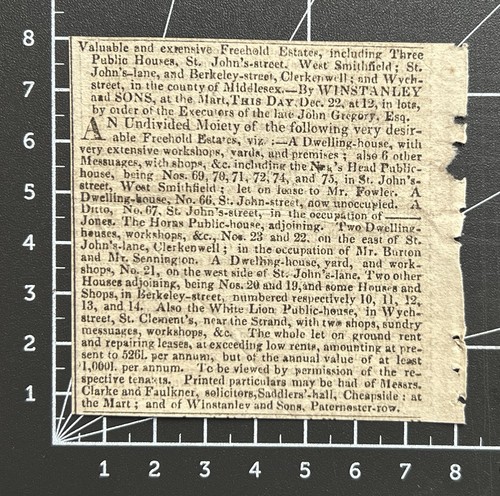 Valuable and extensive Freehold Estates, including Three
Public Houses, St. John's-street, West Smithfield; St.
John's-lane, and Berkeley-street, Clerkenwell; and Wych-
street, in the county of Middlesex.—By WINSTANLEY
and SONS, at the Mart, THIS DAY, Dec. 22, at 12, in lots,
by order of the Executors of the late John Gregory, Esq.
AN Undivided Moiety of the following very desir-
able Freehold Estates, viz:—A Dwelling-house, with
very extensive workshops, yards, and premises; also 6 other
Messuages, with shops, &c. including the Head Public-
house, being Nos. 69, 70, 71, 72, 74, and 75, in St. John's-
street, West Smithfield; let on lease to Mr. Fowler. A
Dwelling-house, No. 66, St. John-street, now unoccupied. A
Ditto, No. 67, St. John's-street, in the occupation of ———
Jones. The Horns Public-house, adjoining. Two Dwelling-
houses, workshops, &c., Nos. 23 and 22, on the east of St.
John's-lane, Clerkenwell; in the occupation of Mr. Burton
and Mr. Sennington. A Dwelling-house, yard, and work-
shops, No. 21, on the west side of St. John's-lane. Two other
Houses adjoining, being Nos. 20 and 19, and some Houses and
Shops, in Berkeley-street, numbered respectively 10, 11, 12,
13, and 14. Also the White Lion Public-house, in Wych-
street, St. Clement's, near the Strand, with two shops, sundry
messuages, workshops, &c. The whole let on ground rent
and repairing leases, at exceeding low rents, amounting at pre-
sent to 526l. per annum, but of the annual value of at least
1,000l. per annum. To be viewed by permission of the re-
spective tenants. Printed particulars may be had of Messrs.
Clarke and Faulkner, solicitors, Saddlers'-hall, Cheapside: at
the Mart; and of Winstanley and Sons, Paternoster-row.
8
7
6
5
4
3
2
1
1 2 3 4 5 6 7 8